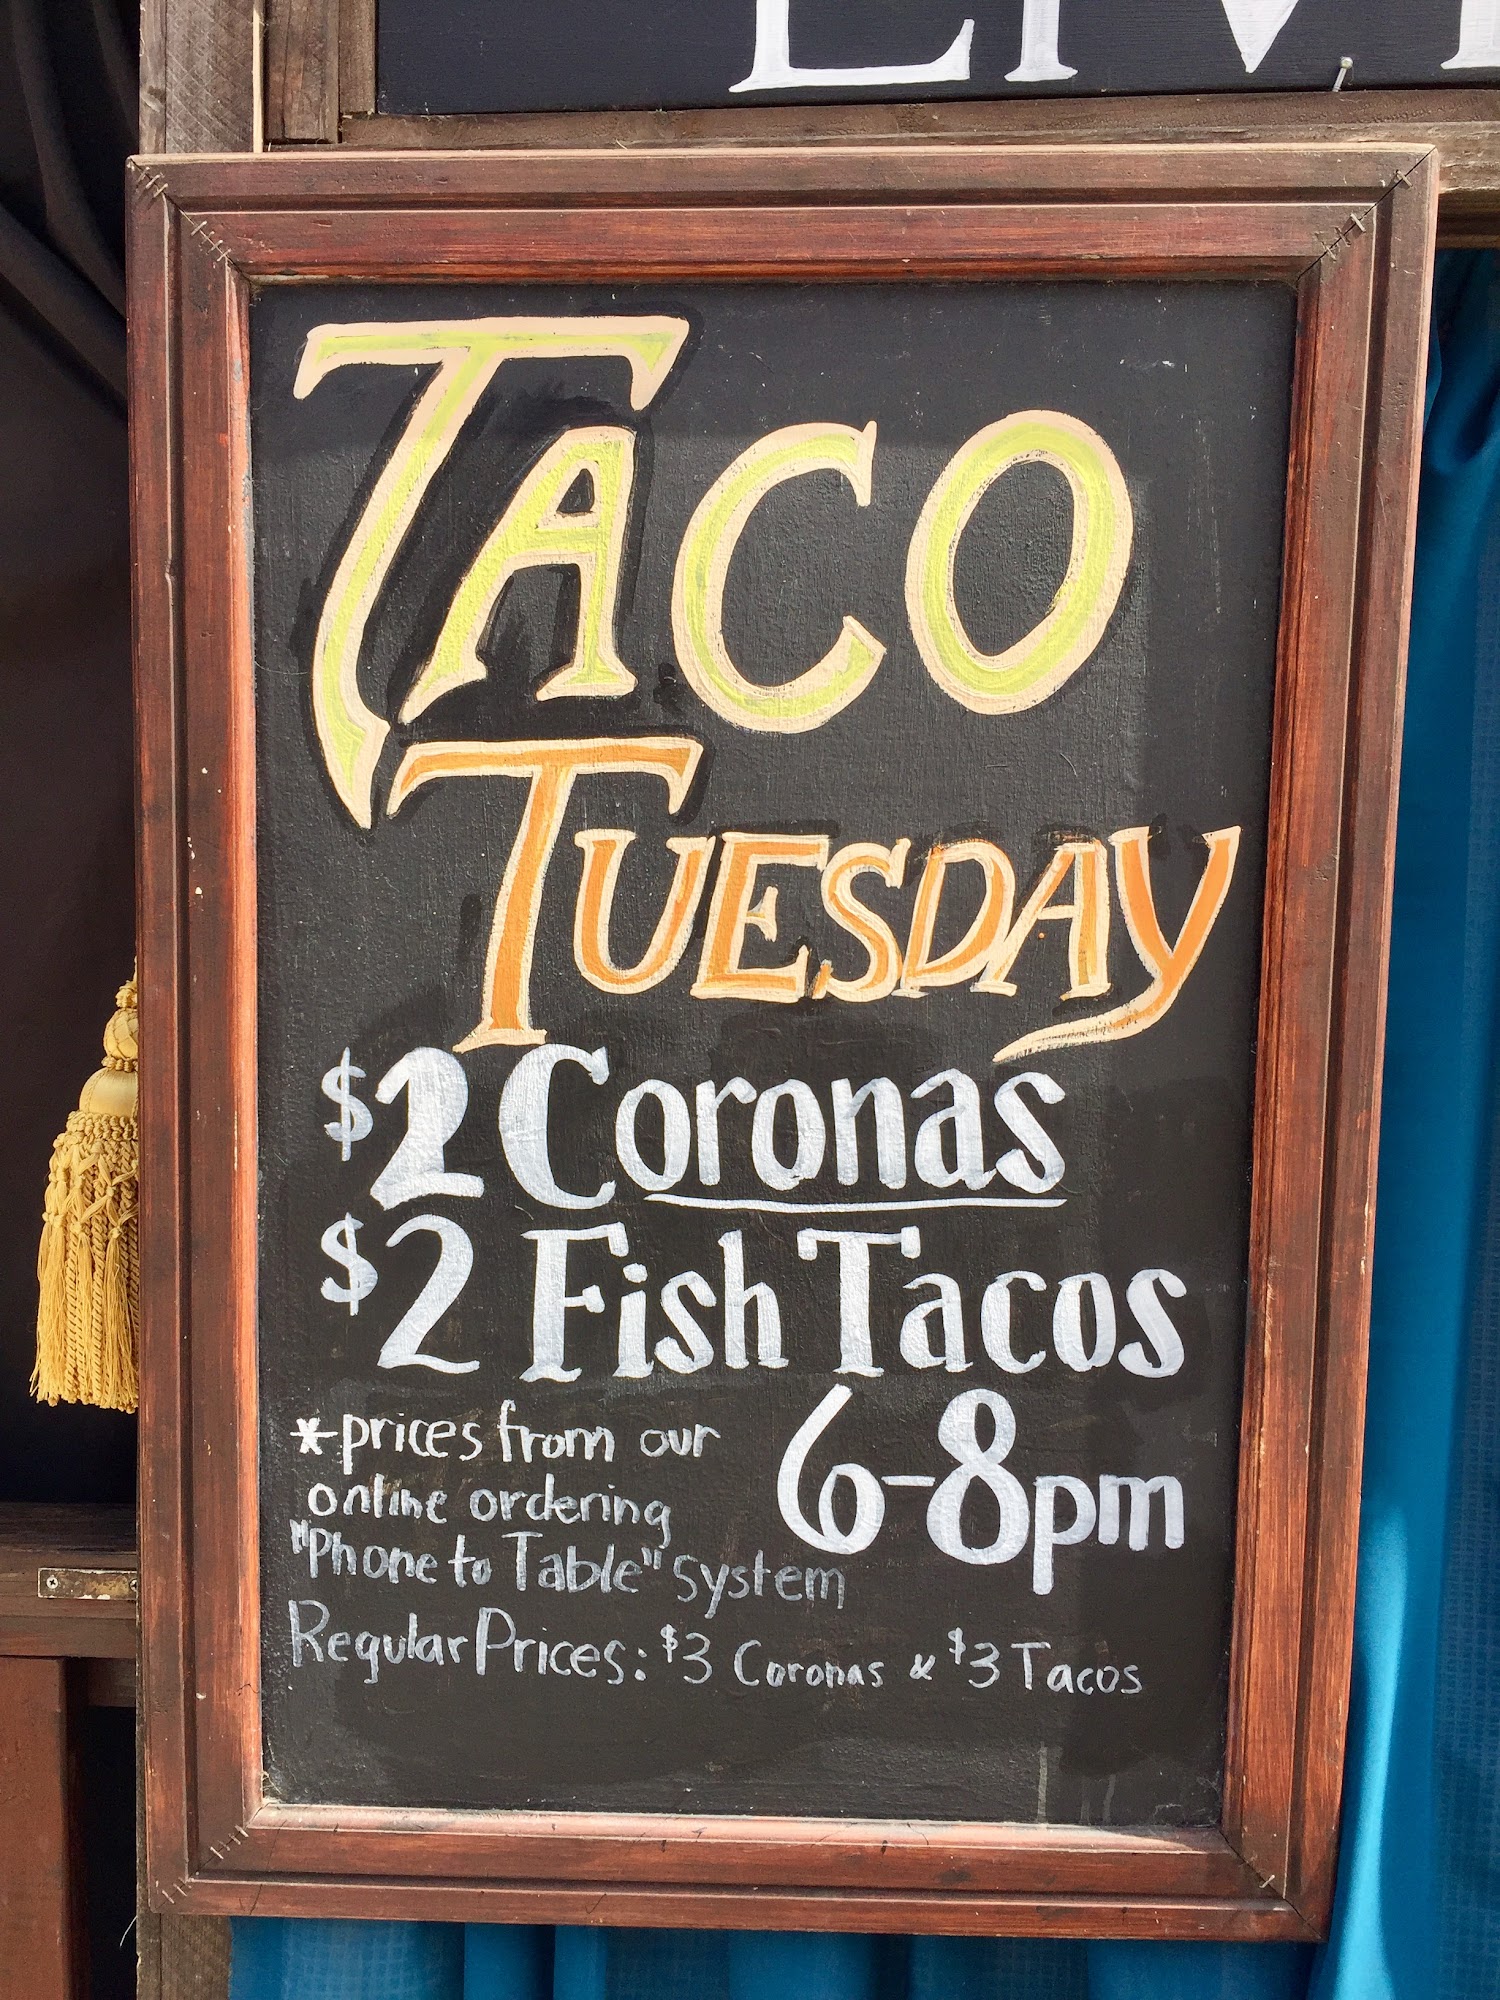 TACO
TUESDAY
$2 Coronas
$2 Fish Tacos
6-8pm
*prices from our
online ordering
"Phone to Table" system
Regular Prices: $3 Coronas & $3 Tacos